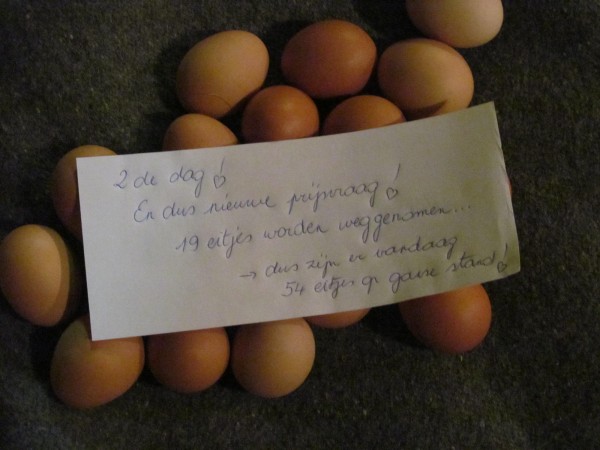 2 de dag!
En dus nieuwe prijsvraag!
19 eitjes worden weggenomen...
→ dus zijn er vandaag
54 eitjes op ganse stand!